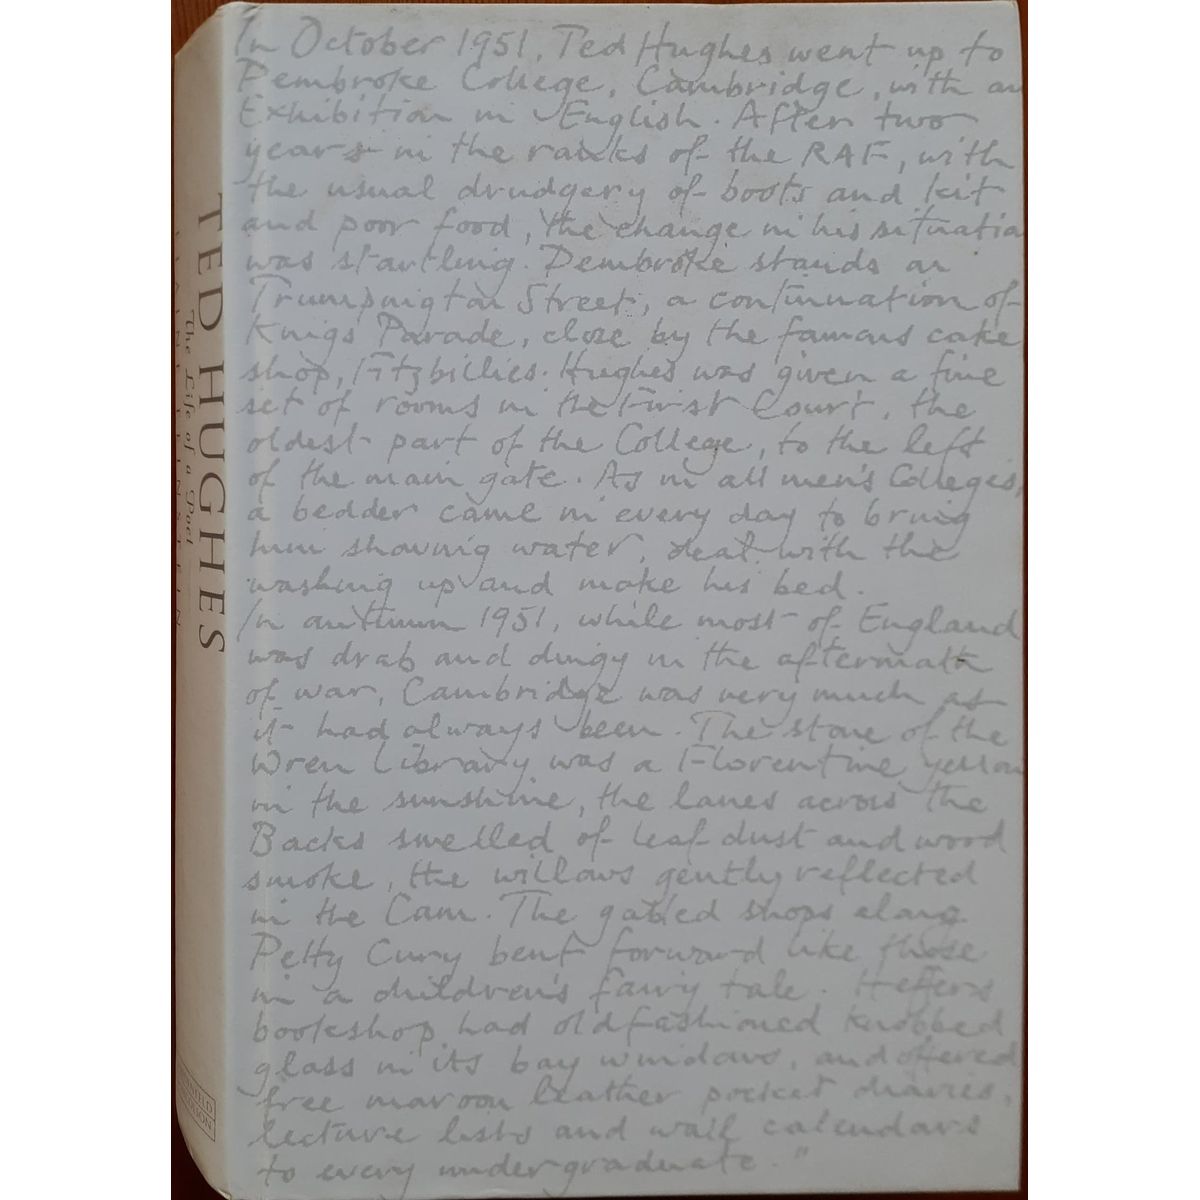 In October 1951, Ted Hughes went up to
Pembroke College, Cambridge, with an
Exhibition in English. After two
years in the ranks of the RAF, with
the usual drudgery of boots and kit
and poor food, the change in his situatio
was startling. Pembroke stands on
Trumpington Street, a continuation of
Kings Parade, close by the famous cake
shop, Fitzbillies. Hughes was given a fine
set of rooms in the First Court, the
oldest part of the College, to the left
of the main gate. As in all men's Colleges,
a bedder came in every day to bring
him shaving water, deal with the
washing up and make his bed.
In autumn 1951, while most of England
was drab and dingy in the aftermath
of war, Cambridge was very much as
it had always been. The stone of the
Wren Library was a Florentine yellow
in the sunshine, the lanes across the
Backs smelled of leaf dust and wood
smoke, the willows gently reflected
in the Cam. The gabled shops along
Petty Cury bent forward like those
in a children's fairy tale. Heffers
bookshop had old fashioned knobbed
glass in its bay windows, and offered
free maroon leather pocket diaries,
lecture lists and wall calendars
to every undergraduate."
TED HUGHES
The Life of a Poet